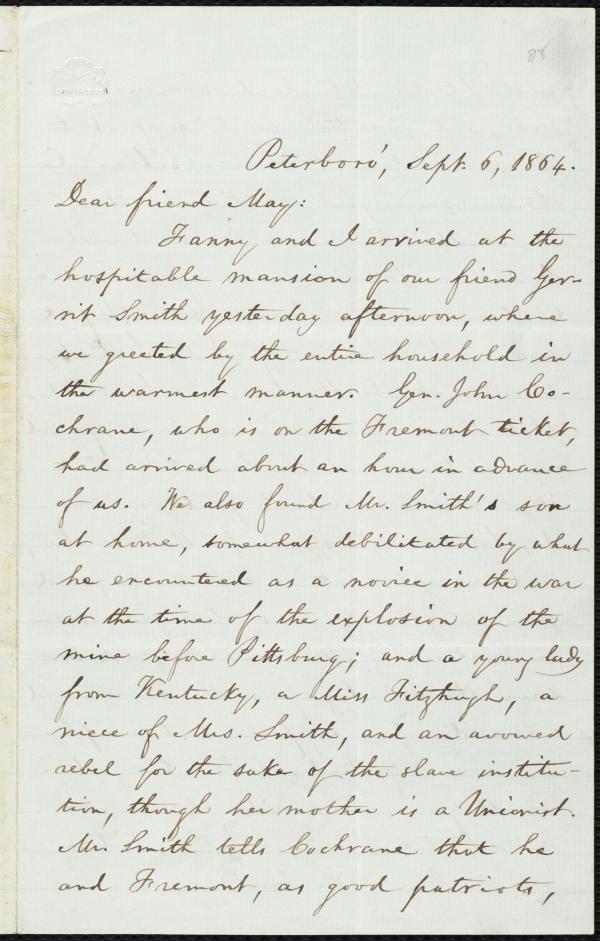 88
Peterboro', Sept. 6, 1864.
Dear friend May:
Fanny and I arrived at the
hospitable mansion of our friend Ger-
rit Smith yesterday afternoon, where
we greeted by the entire household in
the warmest manner. Gen. John Co-
chrane, who is on the Fremont ticket,
had arrived about an hour in advance
of us. We also found Mr. Smith's son
at home, somewhat debilitated by what
he encountered as a novice in the war
at the time of the explosion of the
mine before Pittsburg; and a young lady
from Kentucky, a Miss Fitzhugh, a
niece of Mrs. Smith, and an avowed
rebel for the sake of the slave institu-
tion, though her mother is a Unionist.
Mr. Smith tells Cochrane that he
and Fremont, as good patriots,